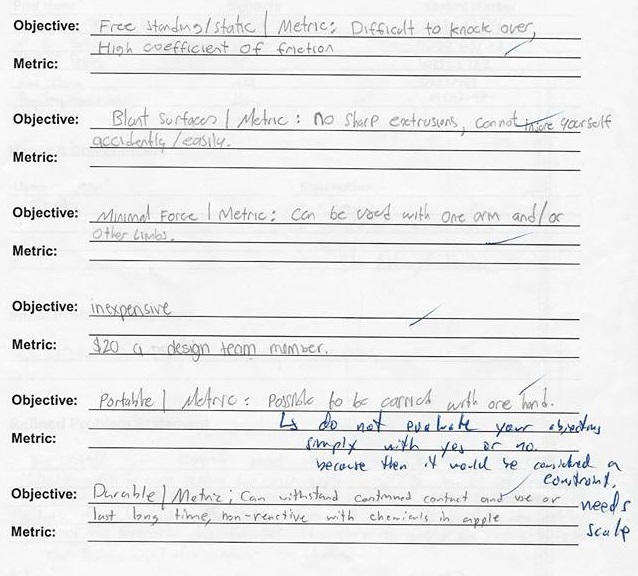 Objective: Free standing/static | Metric: Difficult to knock over,
High coefficient of friction
Metric:
Objective: Blunt Surfaces | Metric: no sharp extrusions, cannot injure yourself
accidently/easily.
Metric:
Objective: Minimal Force | Metric: Can be used with one arm and/or
other limbs.
Metric:
Objective: inexpensive
Metric: $20 a design team member.
Objective: Portable | Metric: Possible to be carried with one hand.
↳ do not evaluate your objectives
Metric: simply with yes or no.
because then it would be considered a
constraint.
Objective: Durable | Metric; Can withstand continued contact and use or
needs
last long time, non-reactive with chemicals in apple
scale
Metric: